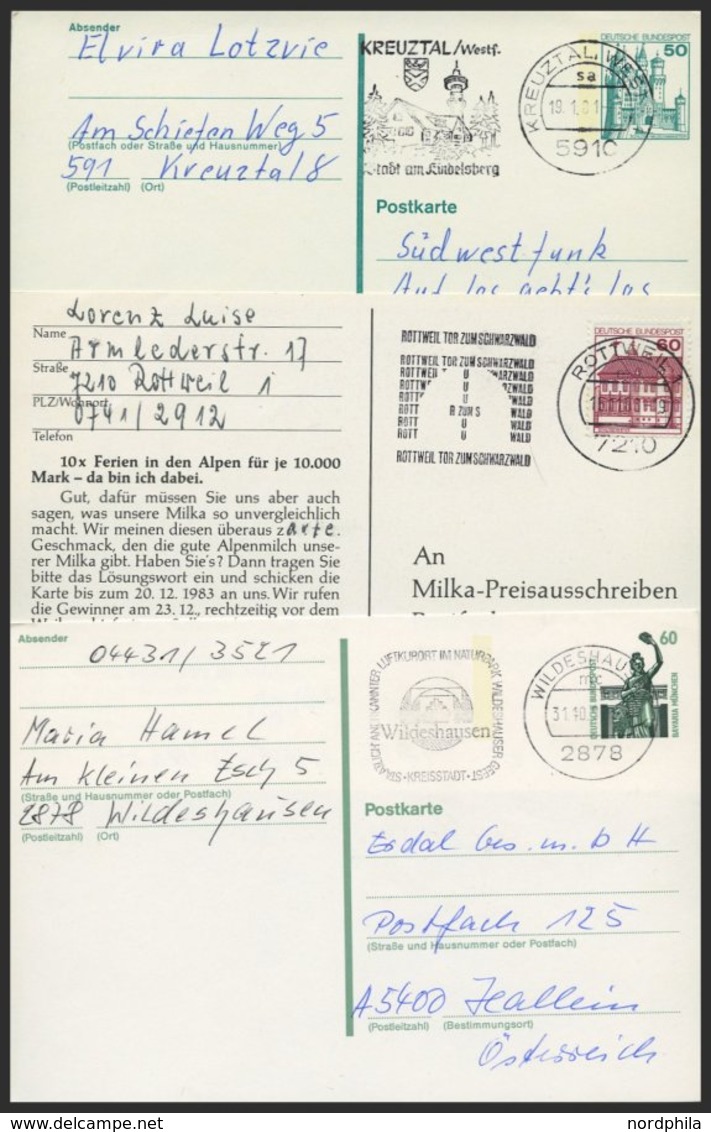 Absender
Elvira Lotzvie
Am Schiefen Weg 5
(Postfach oder Straße und Hausnummer)
591 Kreuztal 8
(Postleitzahl) (Ort)
KREUZTAL/Westf.
Stadt am Kindelsberg
KREUZTAL, WESTF
sa
19.1.81
5910
DEUTSCHE BUNDESPOST
50
Postkarte
Südwestfunk
Auf los geht's los
Lorenz Luise
Name
Armlederstr. 17
Straße
7210 Rottweil 1
PLZ/Wohnort
0741/2912
Telefon
10x Ferien in den Alpen für je 10.000
Mark – da bin ich dabei.
Gut, dafür müssen Sie uns aber auch
sagen, was unsere Milka so unvergleichlich
macht. Wir meinen diesen überaus zarte.
Geschmack, den die gute Alpenmilch unse-
rer Milka gibt. Haben Sie's? Dann tragen Sie
bitte das Lösungswort ein und schicken die
Karte bis zum 20. 12. 1983 an uns. Wir rufen
die Gewinner am 23. 12., rechtzeitig vor dem
ROTTWEIL TOR ZUM SCHWARZWALD
ROTTWEIL TOR ZUM SCHWARZWALD
ROTTWEIL TOR ZUM SCHWARZWALD
ROTTWEIL 1
7210
DEUTSCHE BUNDESPOST
60
An
Milka-Preisausschreiben
Absender
04431/3521
Maria Hamel
Am kleinen Esch 5
(Straße und Hausnummer oder Postfach)
2878 Wildeshausen
(Postleitzahl) (Ort)
STAATLICH ANERKANNTER LUFTKURORT IM NATURPARK WILDESHAUSER GEEST
Wildeshausen
·KREISSTADT·
WILDESHAU
mc
31.10.
2878
60
DEUTSCHE BUNDESPOST
BAVARIA MÜNCHEN
Postkarte
Esdal Ges. m. b H
Postfach 125
(Straße und Hausnummer oder Postfach)
A5400 Hallein
(Postleitzahl) (Bestimmungsort)
Österreich
nordphila